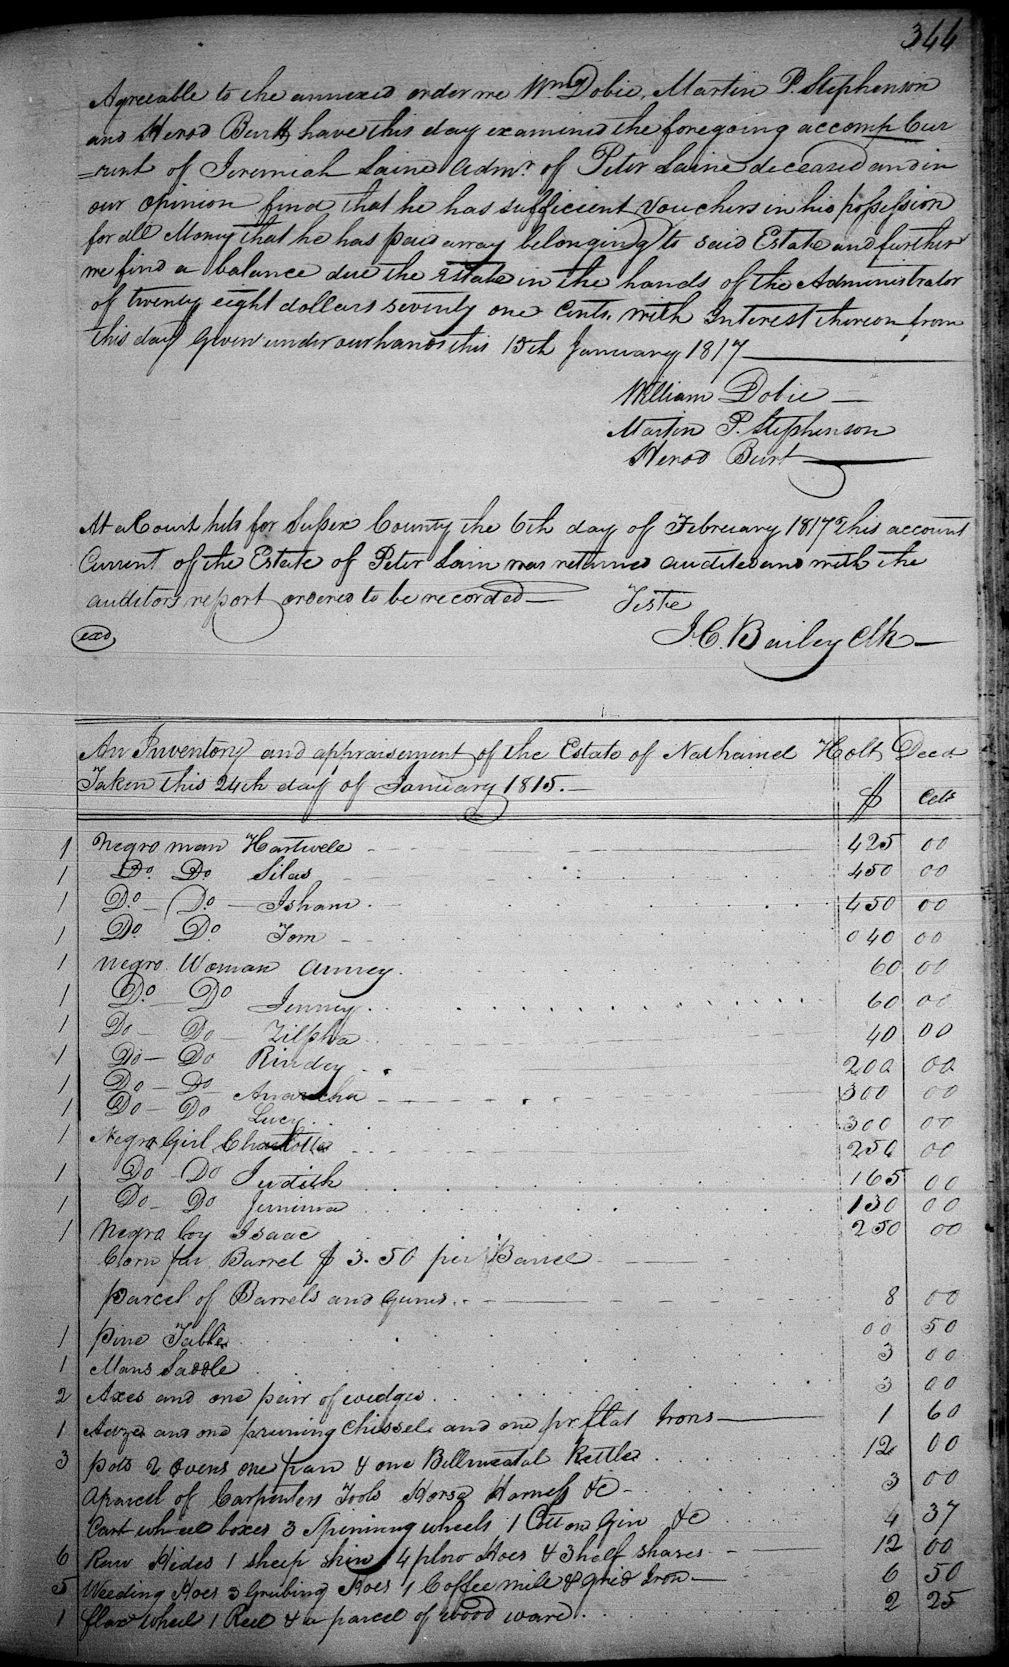 344
Agreeable to the annexed order we Wm Dobie, Martin P. Stephenson
and Herod Burtt have this day examined the foregoing accompt Cur
=rent of Jeremiah Laine Admr. of Peter Laine deceased and in
our opinion find that he has sufficient vouchers in his possession
for all Money that he has paid away belonging to said Estate and further
we find a balance due the Estate in the hands of the Administrator
of twenty eight dollars seventy one Cents. with Interest thereon from
this day Given under our hands this 15th January 1817
William Dobie
Martin P. Stephenson
Herod Burt
At a Court held for Sussex County the 6th day of February 1817 This account
Current of the Estate of Peter Lain was returned audited and with the
auditors report ordered to be recorded
Teste
exd
J. C. Bailey Clk
An Inventory and appraisement of the Estate of Nathaniel Holt Decd.
Taken this 24th day of January 1815. $ Cts
1 Negro man Hartwele 425 00
1 Do. Do Silas 450 00
1 Do. Do. Isham 450 00
1 Do. Do. Tom 040 00
1 Negro Woman Anney 60 00
1 Do. Do Jenney 60 00
1 Do Do Zilpha 40 00
1 Do Do Rindey 200 00
1 Do Do Anarcha 300 00
1 Do Do Lucy 300 00
1 Negro Girl Charlotte 250 00
1 Do Do Judith 165 00
1 Do Do Jemima 130 00
1 Negro boy Isaac 250 00
Corn per Barrel $ 3.50 per Barrel
Parcel of Barrels and Gums 8 00
1 Pine Table 00 50
1 Mans Saddle 3 00
2 Axes and one pair of wedges 3 00
1 Adze and one pruning Chissel and one pr flat Irons 1 60
3 pots 2 Ovens one pan & one Bellmeatal Kettle 12 00
A parcel of Carpenters Tools Horse Harness &c 3 00
Cart wheel boxes 3 Spinning wheels 1 Cotton Gin &c 4 37
6 Raw Hides 1 sheep skin 4 plow Hoes & 3 half shares 12 00
5 Weeding Hoes 3 Grubing Hoes 1 Coffee mill & grid Iron 6 50
1 flax wheel 1 Reel & a parcel of wood ware 2 25